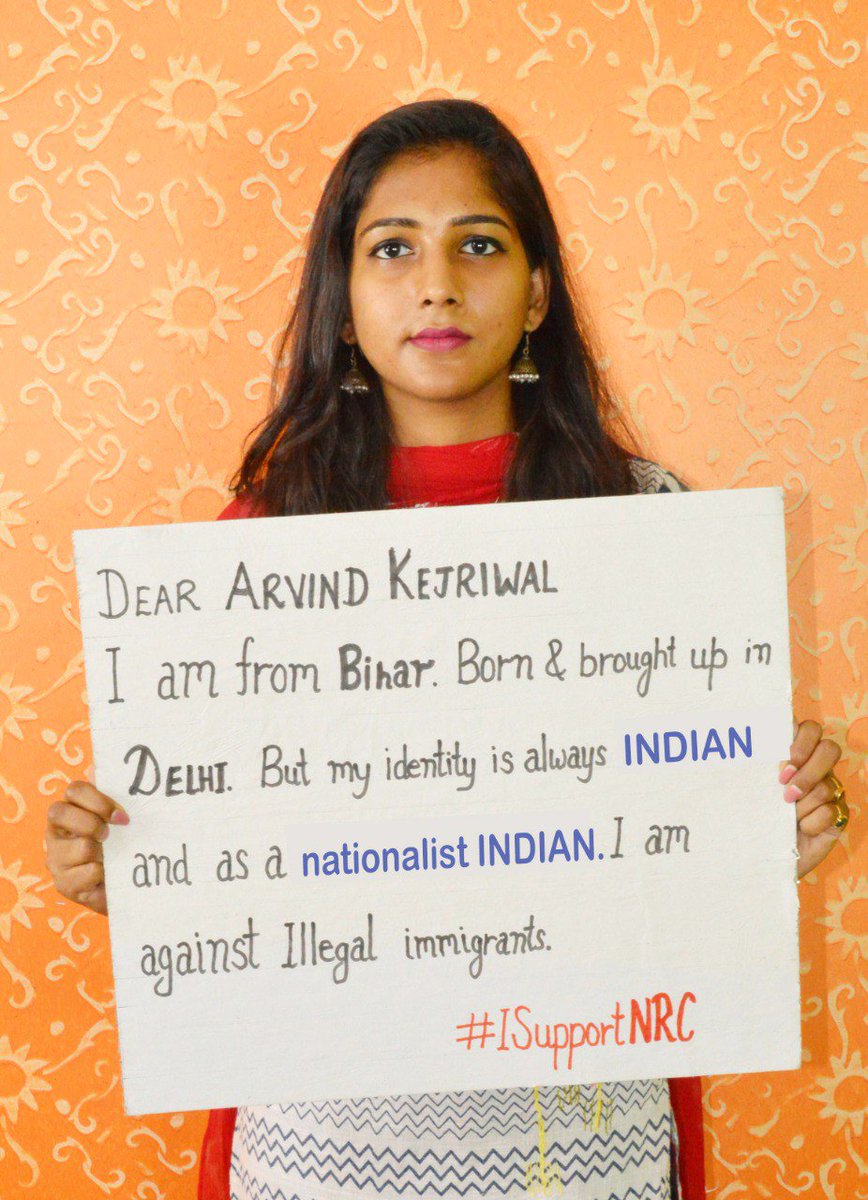 DEAR ARVIND KEJRIWAL
I am from Bihar. Born & brought up in
DELHI. But my identity is always INDIAN
and as a nationalist INDIAN. I am
against Illegal immigrants.
#ISupportNRC